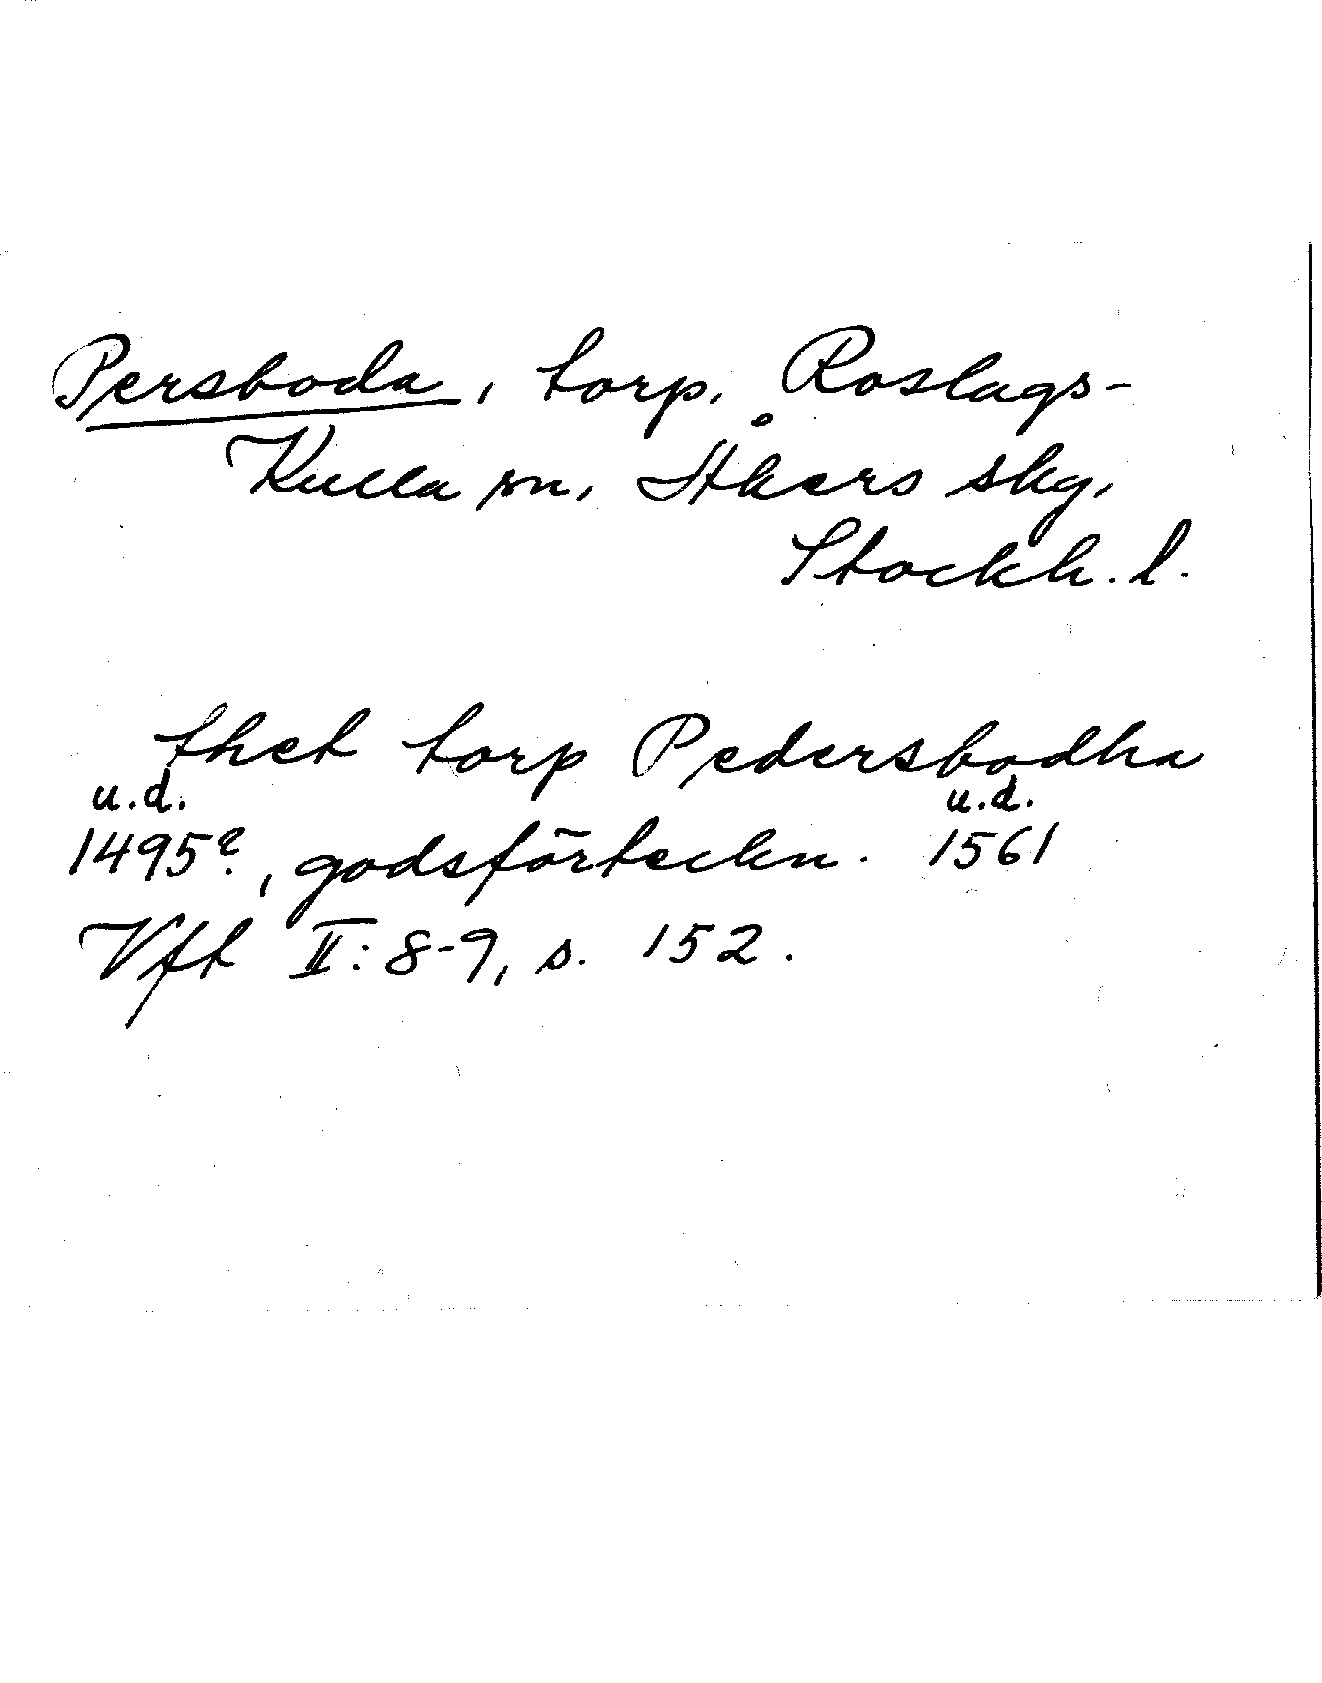 Persboda, torp, Roslags-
Kulla sn, Åkers skg,
Stockh. l.
thet torp Pedersbodha
u.d. u.d.
1495?, godsförteckn. 1561
Vft II: 8-9, s. 152.